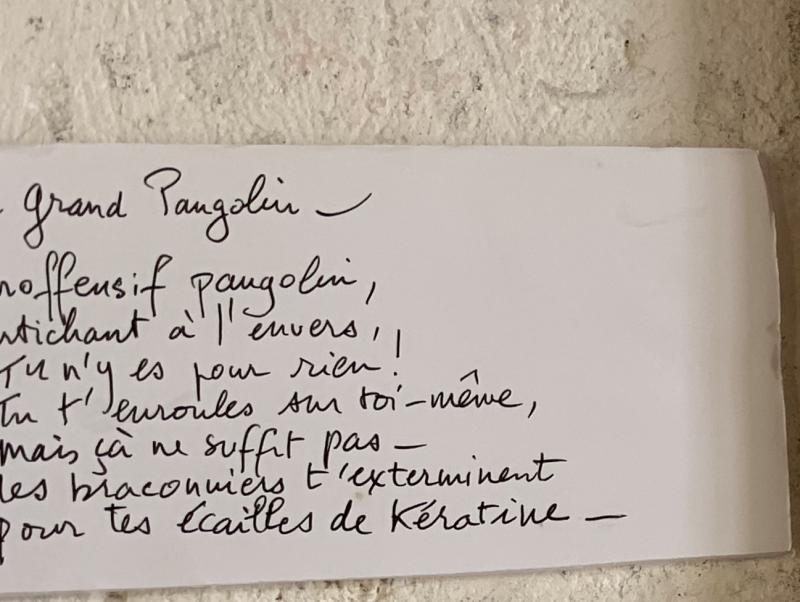 grand Pangolin –
noffensif pangolin,
ntichant à l'envers,
Tu n'y es pour rien !
Tu t'enroules sur toi-même,
mais çà ne suffit pas –
les braconniers t'exterminent
pour tes écailles de Kératine –